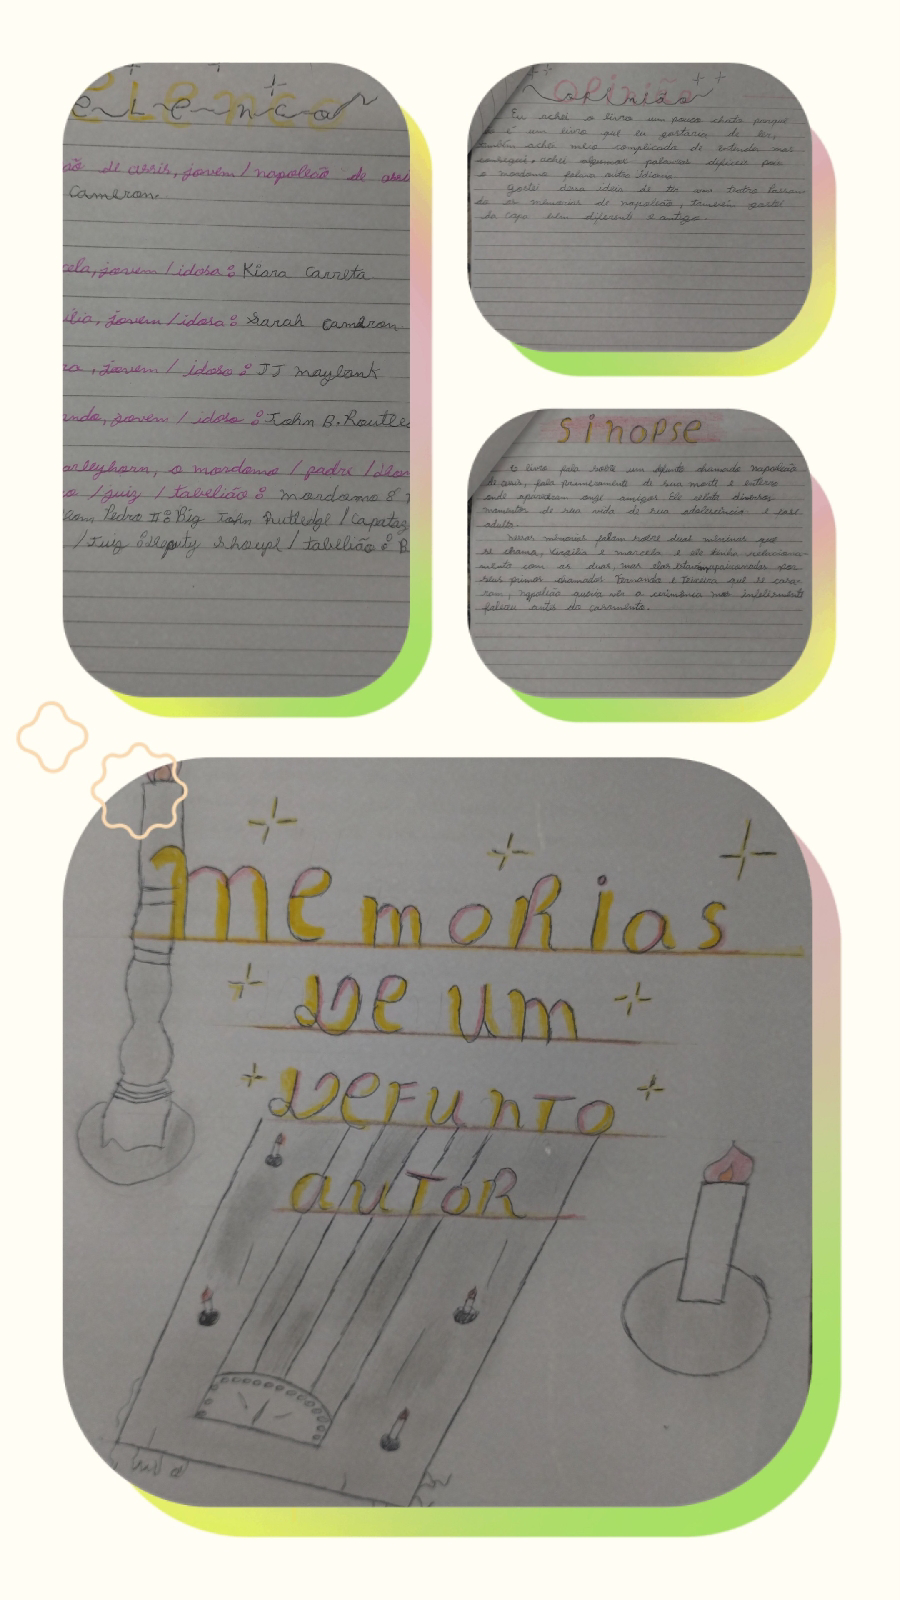 eLenco
ão de assis, jovem / napoleão de assi
Cameron.
cela, jovem / idosa: Kiara Carreta
ilia, jovem / idosa: Sarah cameron
ra, jovem / idoso: JJ maybank
ando, jovem / idoso: John B. Routle
o mordomo / padre /
/ juiz / tabelião: mordomo:
Pedro II: Big John Rutledge / Capataz
/ Juiz: Deputy Shoupe / tabelião: B
opinião
Eu achei o livro um pouco chato porque
é um livro que eu gostaria de ler,
também achei meio complicado de entender mas
consegui, achei algumas palavras difíceis pois
o mordomo falava outro idioma.
gostei da ideia de ter um teatro
as memorias de napoleão, também gostei
da capa bem diferente e antiga.
sinopse
O livro fala sobre um defunto chamado napoleão
de assis, fala primeiramente de sua morte e enterro
onde aparecem onze amigos. Ele relata diversos
momentos de sua vida de sua adolescência e fase
adulta.
Nessas memorias falam sobre duas meninas que
se chama, Virgilia e marcela e ele tinha relaciona-
mento com as duas, mas elas estavam apaixonadas por
seus primos chamados Fernando e Teixeira que se casa-
ram, napoleão queria ver a cerimônia mas infelizmente
faleceu antes do casamento.
memorias
De um
Defunto
autor